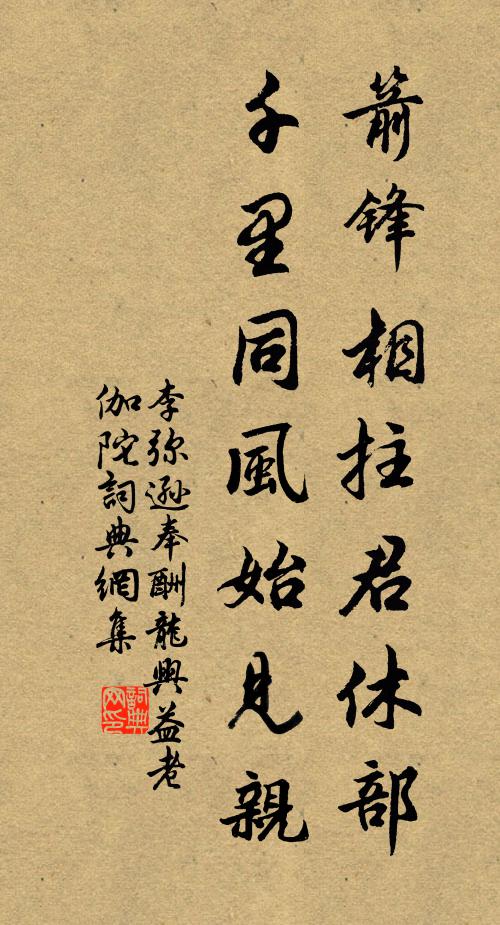 箭鋒相拄君休部
千里同風始見親
李弥遜奉酬龍興益老
伽陀詞典網集
詞典网印